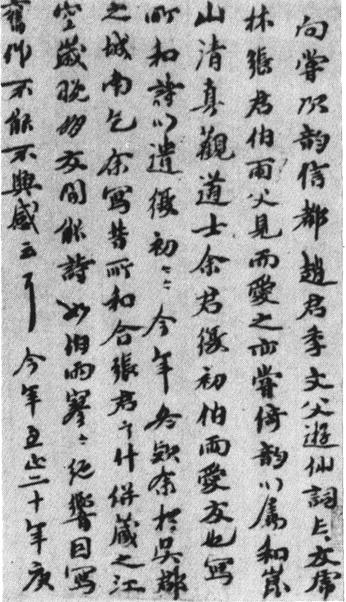 向嘗次韵信都趙君季文父遊仙詞友虎
林張君伯雨父見而愛之亦嘗倚韵以属和崑
山清真觀道士余君復初伯雨愛友也寫
所和詩以遺復初〻今年冬欵余於吳郡
之城南乞余寫昔所和合張君之什併蔵之江
空歳晚好友間能詩如伯雨寥〻絕響因寫
舊作不能不興感云耳 今年至正二十年庚